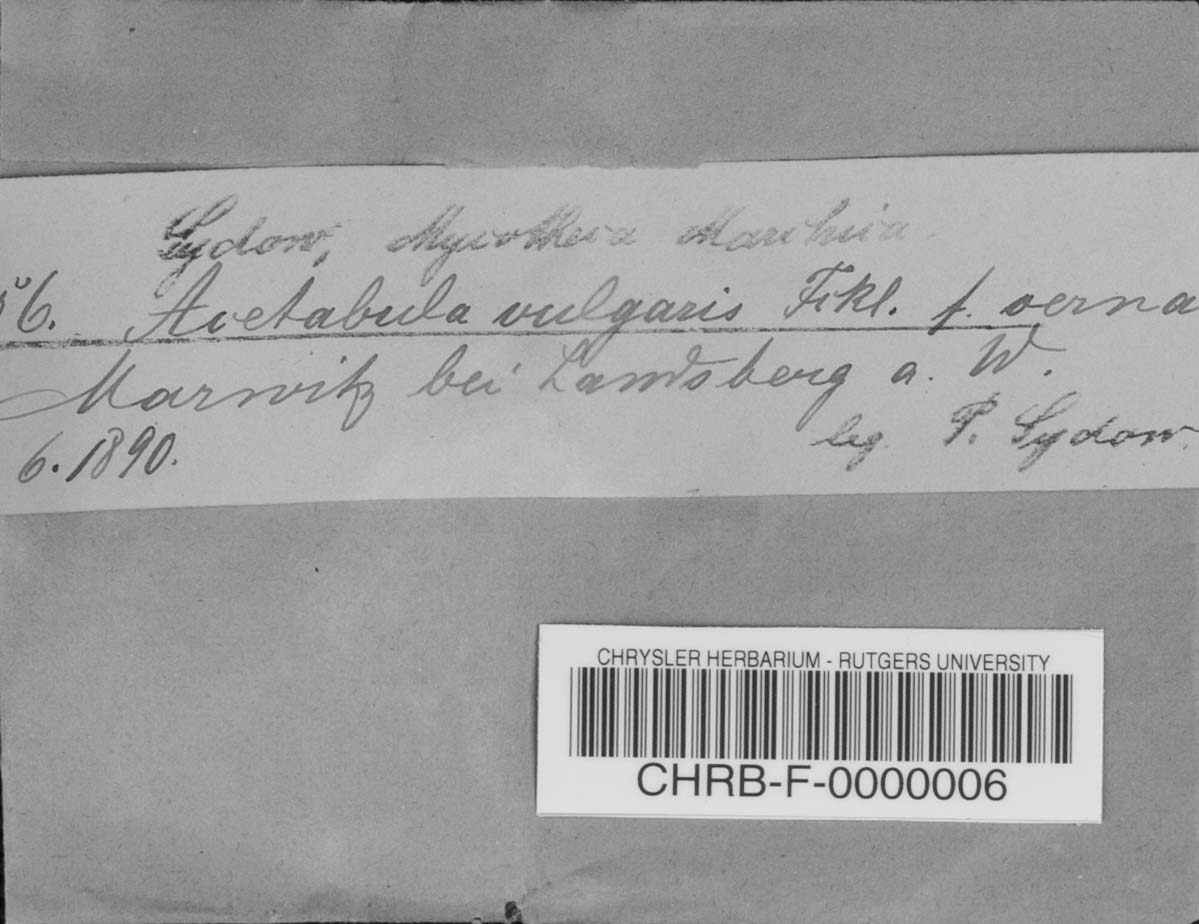 Sydow, Mycotheca Marchica.
56. Acetabula vulgaris Fckl. f. verna
Marwitz bei Landsberg a. W.
6. 1890.
leg. P. Sydow.
CHRYSLER HERBARIUM - RUTGERS UNIVERSITY
CHRB-F-0000006